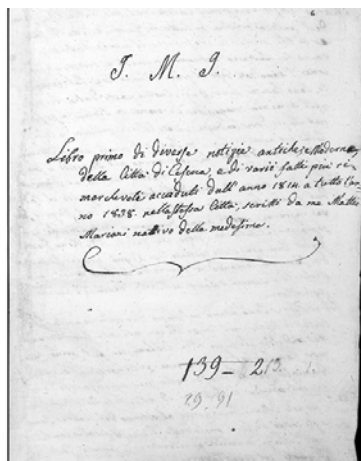 J. M. J.
Libro primo di diverse notizie antiche e Moderne
della Città di Cesena, e di varii fatti più ri-
marchevole accaduti dall'anno 1814. a tutto l'an-
no 1838. nella stessa Città, scritti da me Mattia
Mariani nattivo della medesima.
139 - 2
29. 91